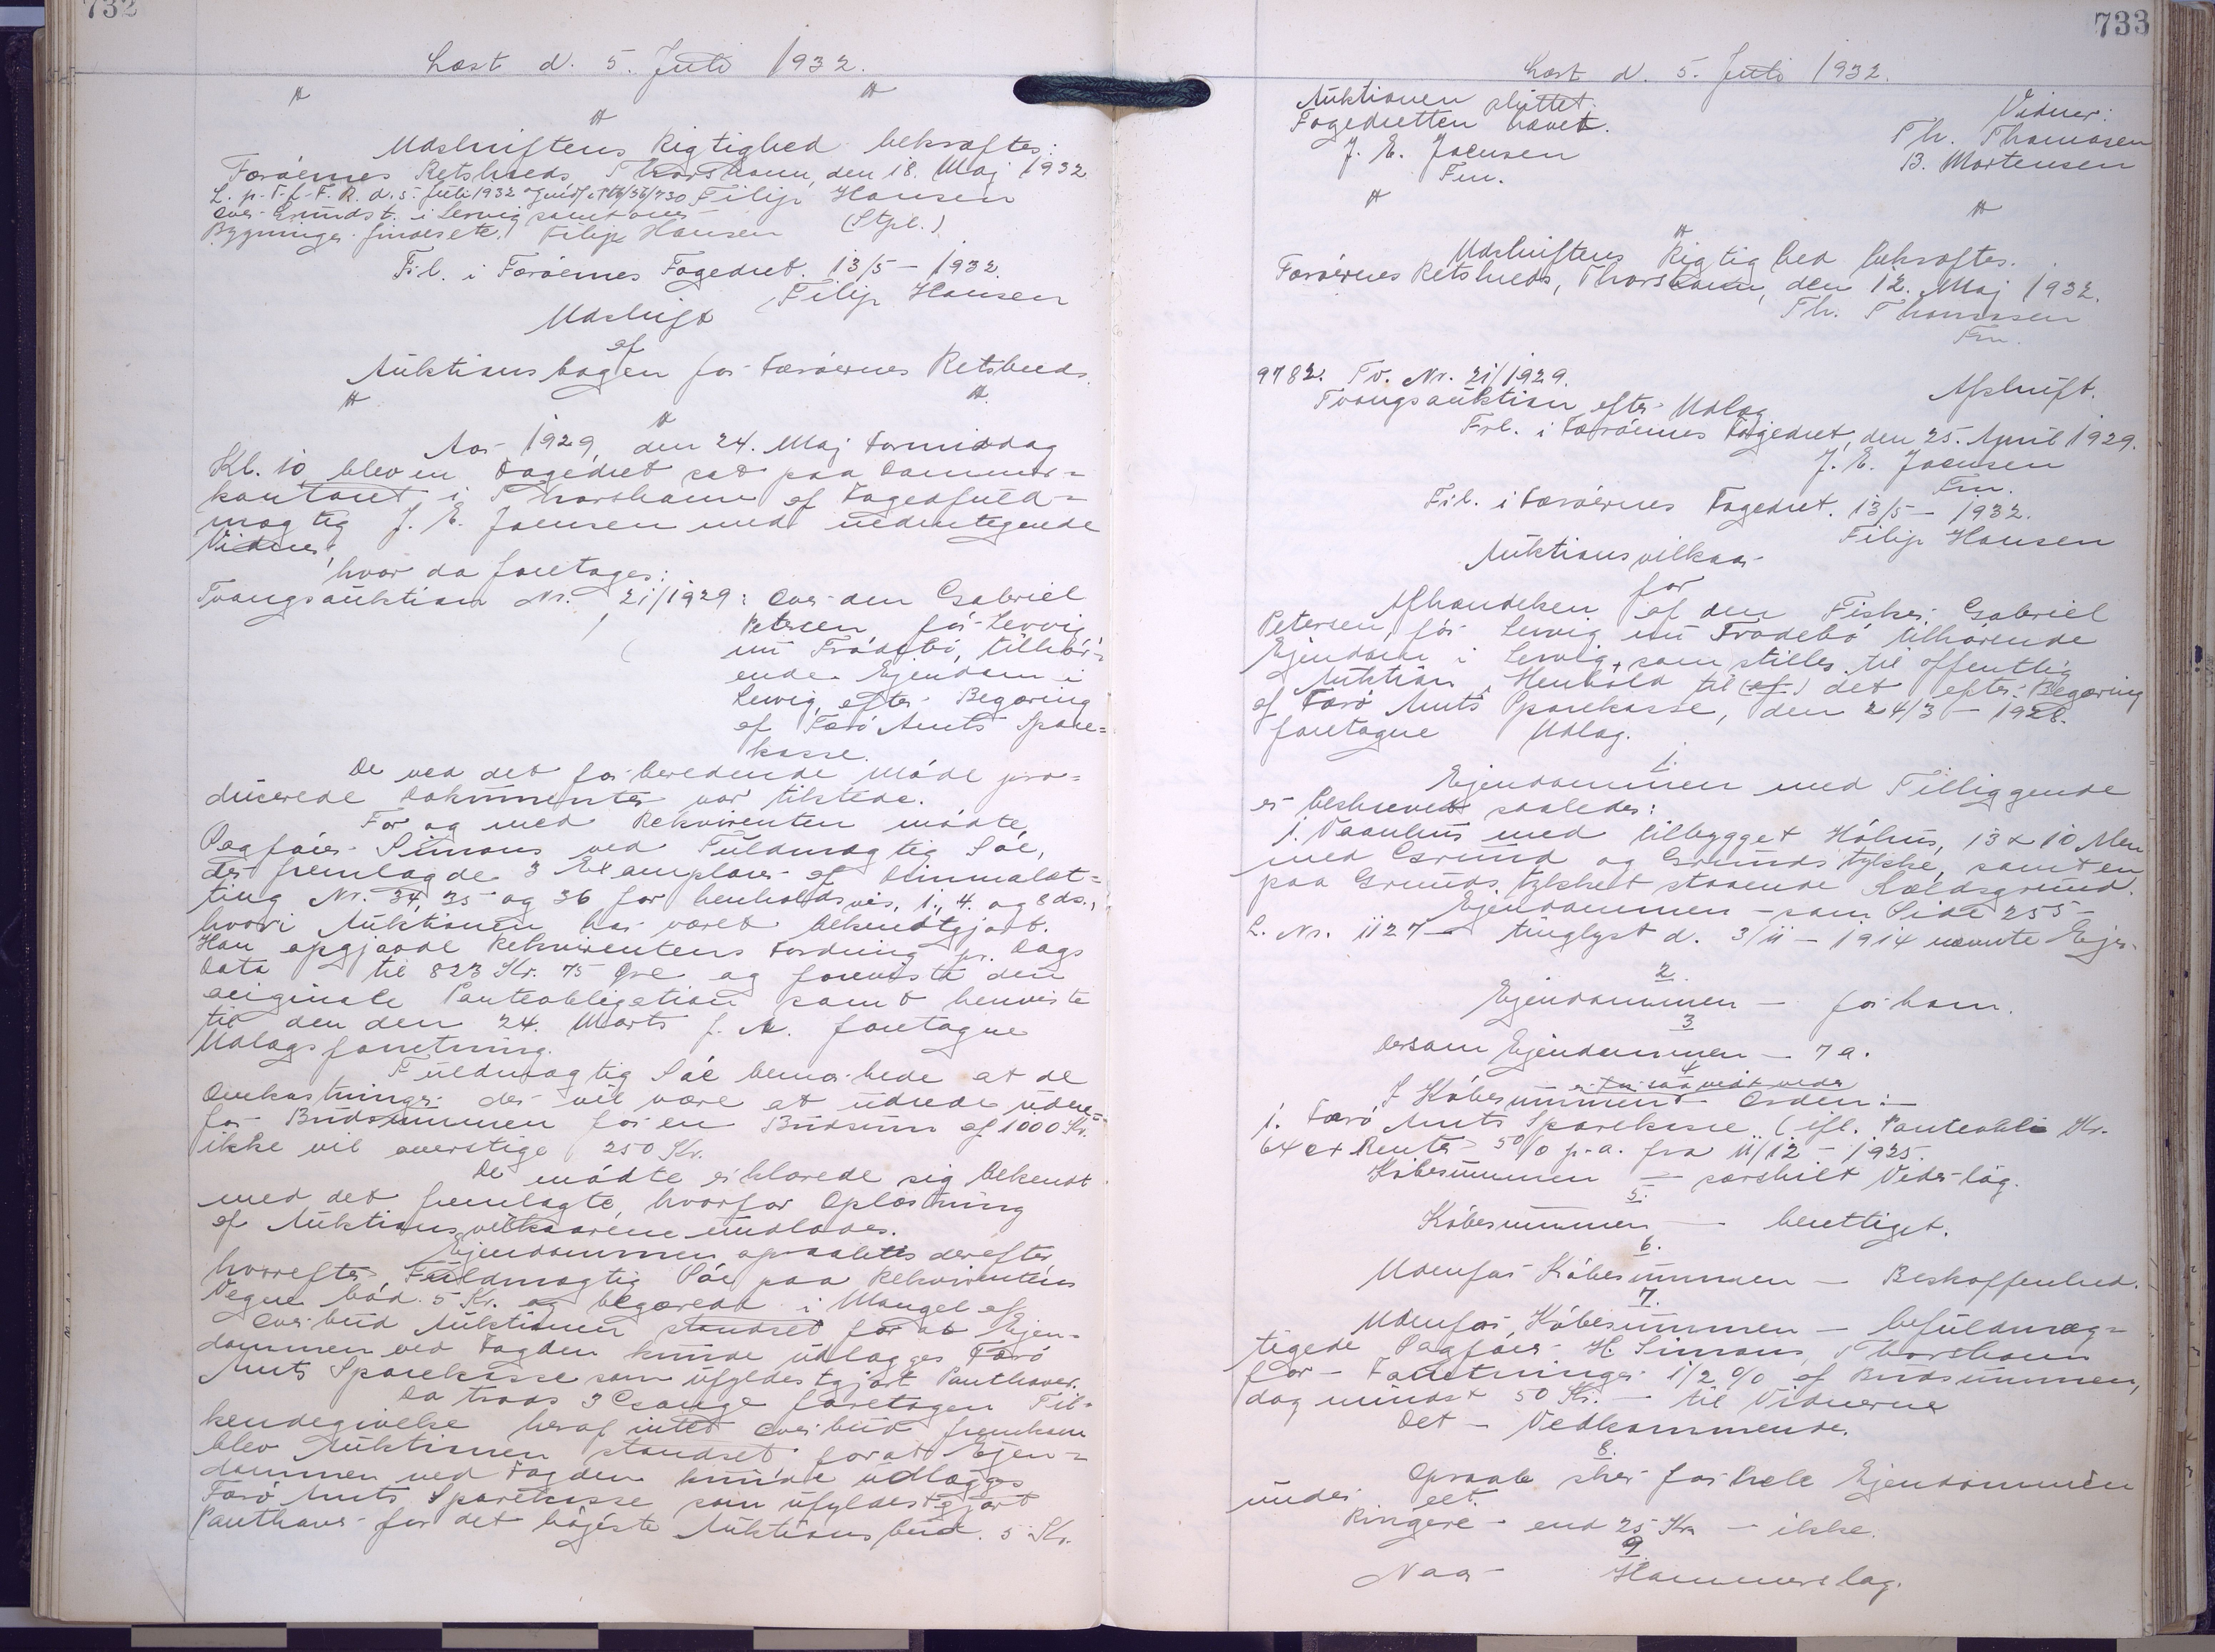 732
Læst d. 5. Juli 1932.
Udskriftens Rigtighed bekræftes:
Færøernes Retskreds, Thorshavn, den 18. Maj 1932
L. p. T. f. F. R. d. 5. Juli 1932 Filip Hansen
over Grundst. i Lervig samt over
Bygninger findes etc. Filip Hansen (Stpl.)
Frl. i Færøernes Fogedret. 13/5 - 1932.
Filip Hansen
Udskrift
af
Auktionsbogen for Færøernes Retskreds.
Aar 1929, den 24. Maj Formiddag
Kl. 10 blev en Fogedret sat paa Dommer=
kontoret i Thorshavn af Fogedfuld=
mægtig J. E. Joensen med undertegnede
Vidner,
hvor da foretages:
Tvangsauktion Nr. 21/1929: Over den Gabriel
Petersen før Lervig
nu Frødebø, tilhør=
ende Ejendom i
Lervig, efter Begæring
af Færø Amts Spare=
kasse.
De ved det forberedende Møde pro=
ducerede Dokumenter var tilstede.
For og med Rekvirenten mødte
Sagfører Simons ved Fuldmægtig Poe,
der fremlagde 3 Exemplarer af Dimmalæt=
ting Nr. 34, 35 og 36 for henholdsvis, 1., 4. og 8 ds.,
hvori Auktionen har været bekendtgjort.
Han opgjorde Rekvirentens Fordring pr. Dags
Dato til 823 Kr. 75 Øre og foreviste den
originale Panteobligation samt henviste
til den den 24. Marts f. A. foretagne
Udlægsforretning.
Fuldmægtig Poe bemærkede at de
Omkostninger der vil være at udrede uden=
for Budsummen for en Budsum af 1000 Kr.
ikke vil overstige 250 Kr.
De mødte erklærede sig bekendt
med det fremlagte, hvorfor Oplæsning
af Auktionsvilkaarene undlades.
Ejendommen opraabtes derefter,
hvorefter Fuldmægtig Poe paa Rekvirentens
Vegne bød 5 Kr. og begærede i Mangel af
Overbud Auktionen standset for at Ejen=
dommen ved Fogden kunde udlægges Færø
Amts Sparekasse som ufyldestgjort Panthaver.
Da trods 3 Gange foretagen Til=
kendegivelse heraf intet Overbud fremkom
blev Auktionen standset forat Ejen=
dommen ved Fogden kunde udlægges
Færø Amts Sparekasse som ufyldestgjort
Panthaver for det højeste Auktionsbud. 5 Kr.
733
Læst d. 5. Juli 1932.
Auktionen sluttet.
Fogedretten hævet.
J. E. Joensen
Fm.
Vidner:
Th. Thomasen
B. Mortensen
Udskriftens Rigtighed bekræftes.
Færøernes Retskreds, Thorshavn, den 12. Maj 1932.
Th. Thomasen
Fm.
9782. Tv. Nr. 21/1929.
Afskrift.
Tvangsauktion efter Udlæg.
Frl. i Færøernes Fogedret, den 25. April 1929.
J. E. Joensen
Fm.
Frl. i Færøernes Fogedret. 13/5 - 1932.
Filip Hansen
Auktionsvilkaar
for
Afhændelsen af den Fisker Gabriel
Petersen, før Lervig nu Frødebø tilhørende
Ejendom i Lervig, som stilles til offentlig
Auktion i Henhold til (af) det efter Begæring
af Færø Amts Sparekasse, den 24/3 - 1928.
foretagne Udlæg.
1.
Ejendommen med Tilliggende
er beskrevet saaledes:
1. Vaanhus med tilbygget Hólhus, 13 x 10 Alen
med Grund og Grundstykke, samt en
paa Grundstykket staaende Kældsgrund.
Ejendommen - som Side 255 -
L. Nr. 1127 - tinglyst d. 3/11 - 1914 nævnte Ejer.
2.
Ejendommen - for ham.
3
Dersom Ejendommen - 7 a.
4
I Købesummen - Orden:
1. Færø Amts Sparekasse (ifl. Panteobl. Kr.
64 et Renter 5% p. a. fra 11/12 - 1925.
Købesummen - særskilt Vederlag.
5.
Købesummen - berettiget.
6.
Udenfor Købesummen - Beskaffenhed.
7.
Udenfor Købesummen - befuldmæg=
tigede Sagfører H. Simons, Thorshavn
for - Forretninger 1/2 % af Budsummen,
dog mindst 50 Kr. - til Vidnerne
Det - Vedkommende.
8.
Opraab sker for hele Ejendommen
under eet.
Ringere - end 25 Kr. - ikke.
9
Naar Hammerslag.